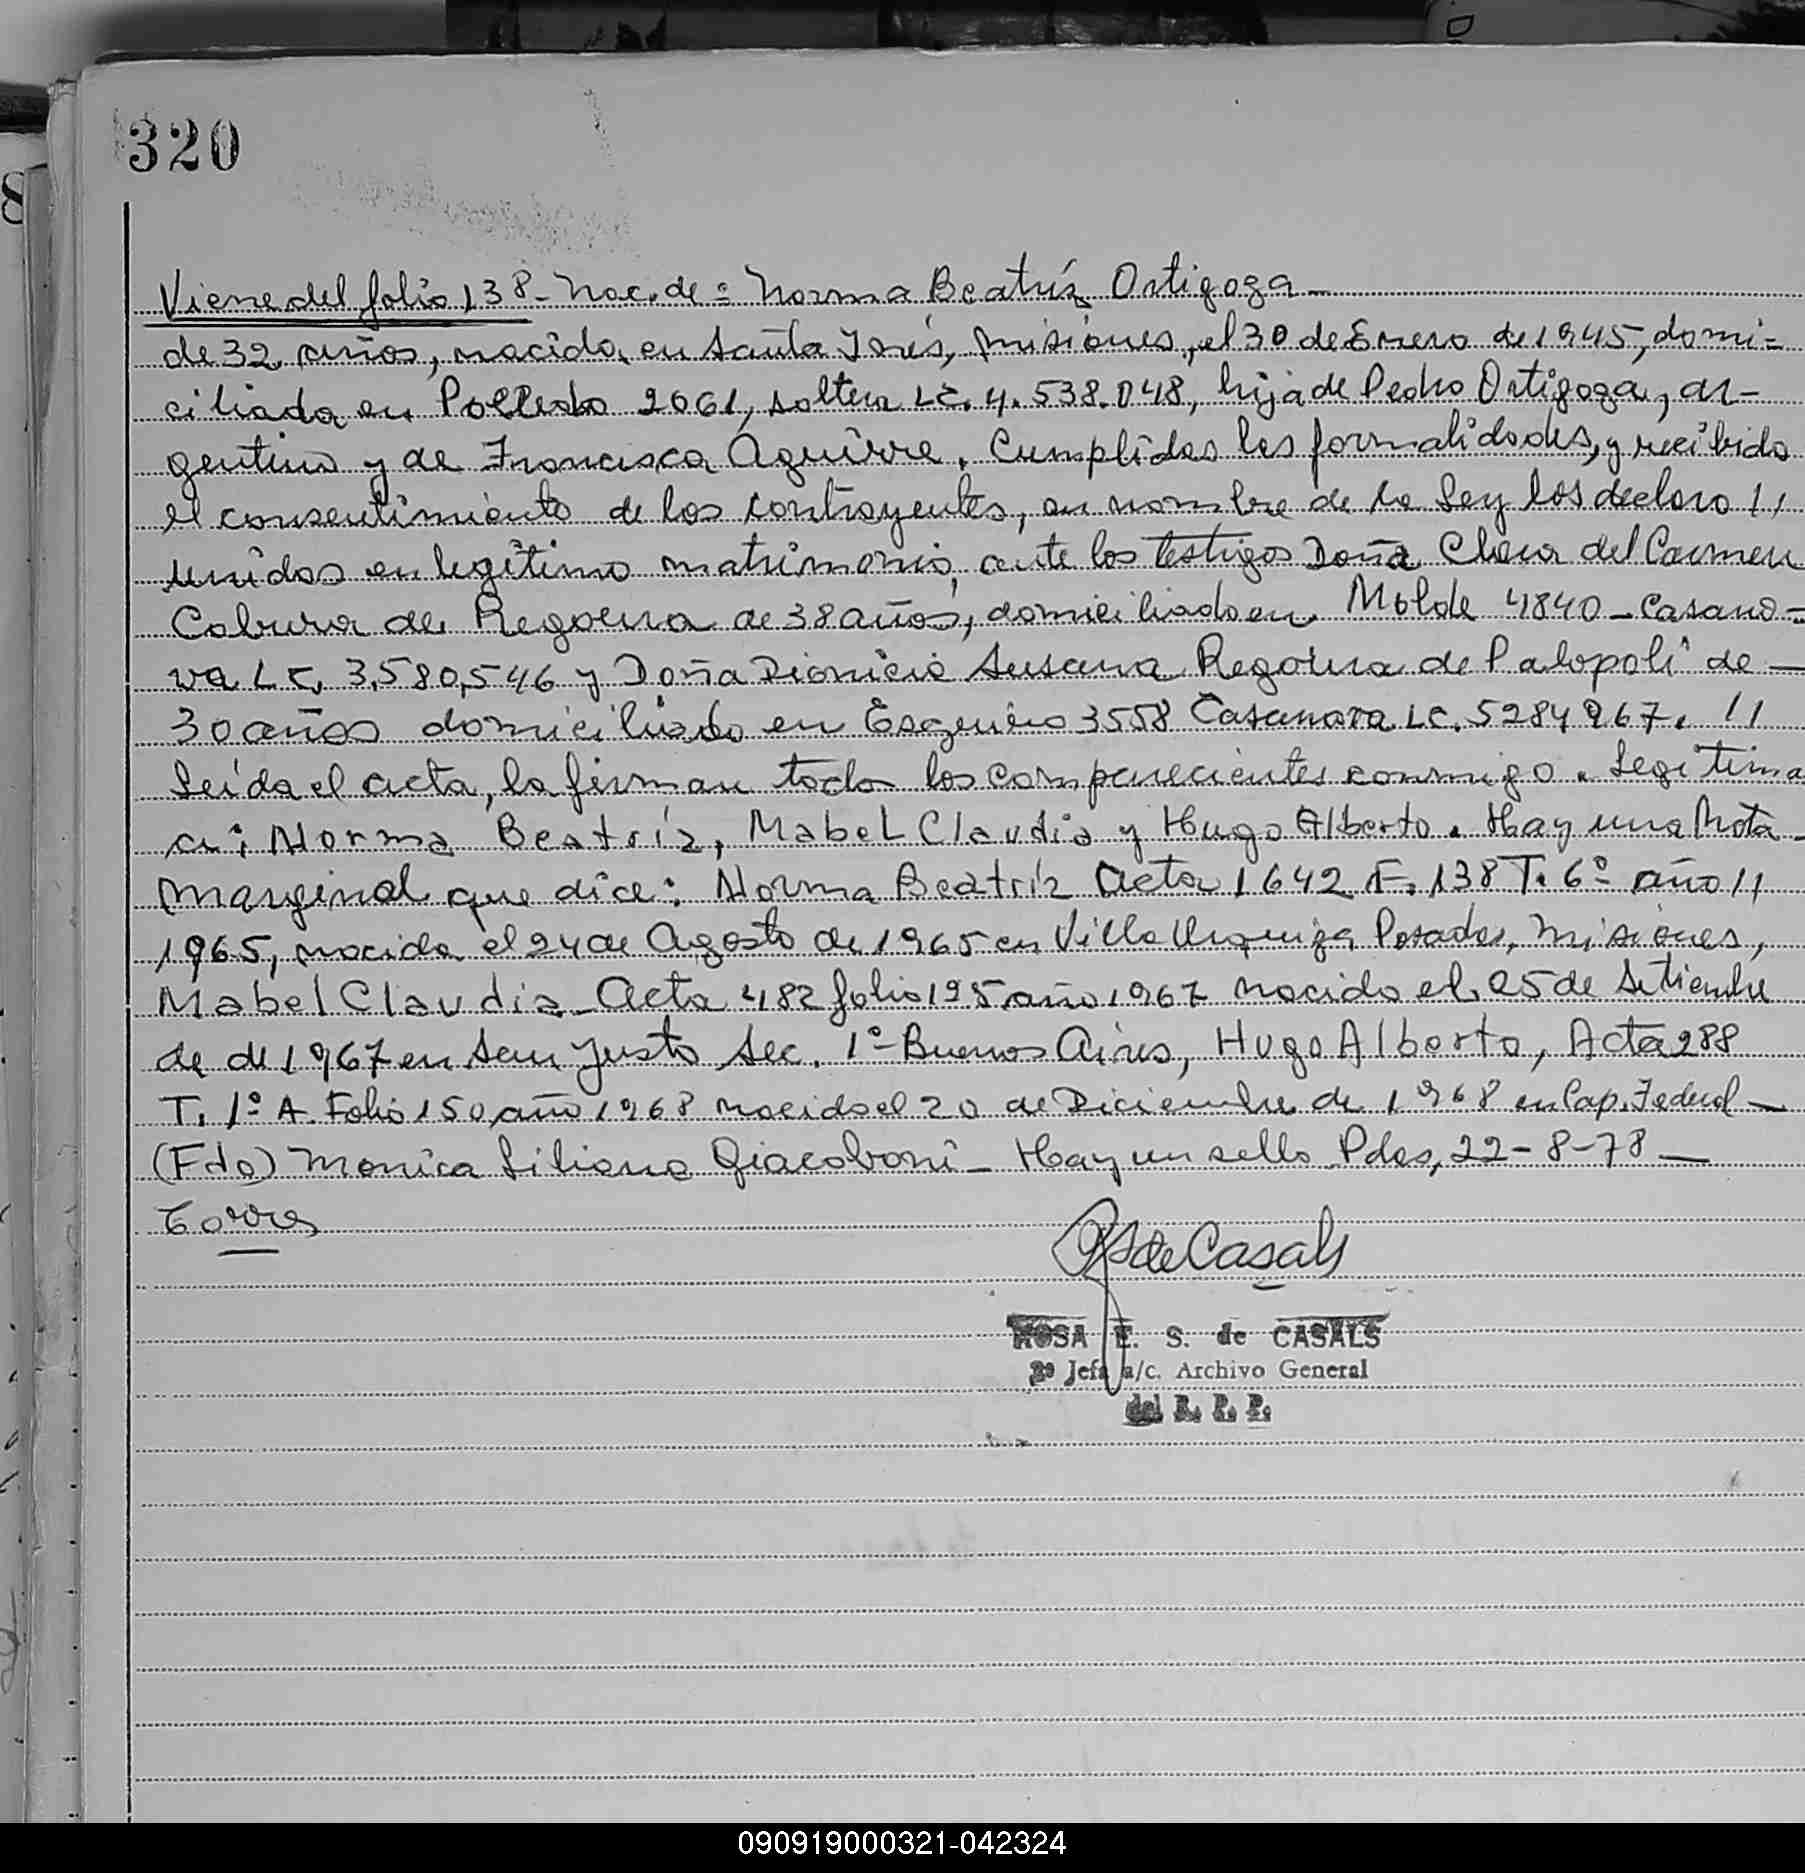 320
Viene del folio 138 - Nac. de = Norma Beatríz Ortigoza -
de 32 años, nacida en Santa Inés, Misiones, el 30 de Enero de 1945, domi=
ciliada en Polledo 2061, soltera Lc. 4.538.048, hija de Pedro Ortigoza, ar-
gentino y de Francisca Aguirre. Cumplidas las formalidades, y recibido
el consentimiento de los contrayentes, en nombre de la Ley los declaro //
unidos en legítimo matrimonio, ante los testigos Doña Clara del Carmen
de Regoera de 38 años, domiciliado en Molde 4840 - Casano=
va Lc, 3,580,546 y Doña Dionicia Susana Regoera de Palopoli de —
30 años domiciliado en 3558 Casanova Lc. 5284967. //
Leída el acta, la firman todos los comparecientes conmigo. Legitima
a: Norma Beatríz, Mabel Claudia y Hugo Alberto. Hay una Nota -
marginal que dice: Norma Beatríz Acta 1642 F. 138 T. 6º año //
1965, nacida el 24 de Agosto de 1965 en Villa Urquiza Posadas, Misiones,
Mabel Claudia - Acta 482 folio 195 año 1967 nacida el 25 de Setiembre
de de 1967 en San Justo Sec. 1º - Buenos Aires, Hugo Alberto, Acta 288
T. 1º A. Folio 150 año 1968 nacido el 20 de Diciembre de 1968 en Cap. Federal —
(Fdo) Monica Liliana Giacoboni - Hay un sello Pdas, 22-8-78 —
Torres
de Casals
ROSA E. S. de CASALS
2º Jefa a/c. Archivo General
del R. P. P.
090919000321-042324